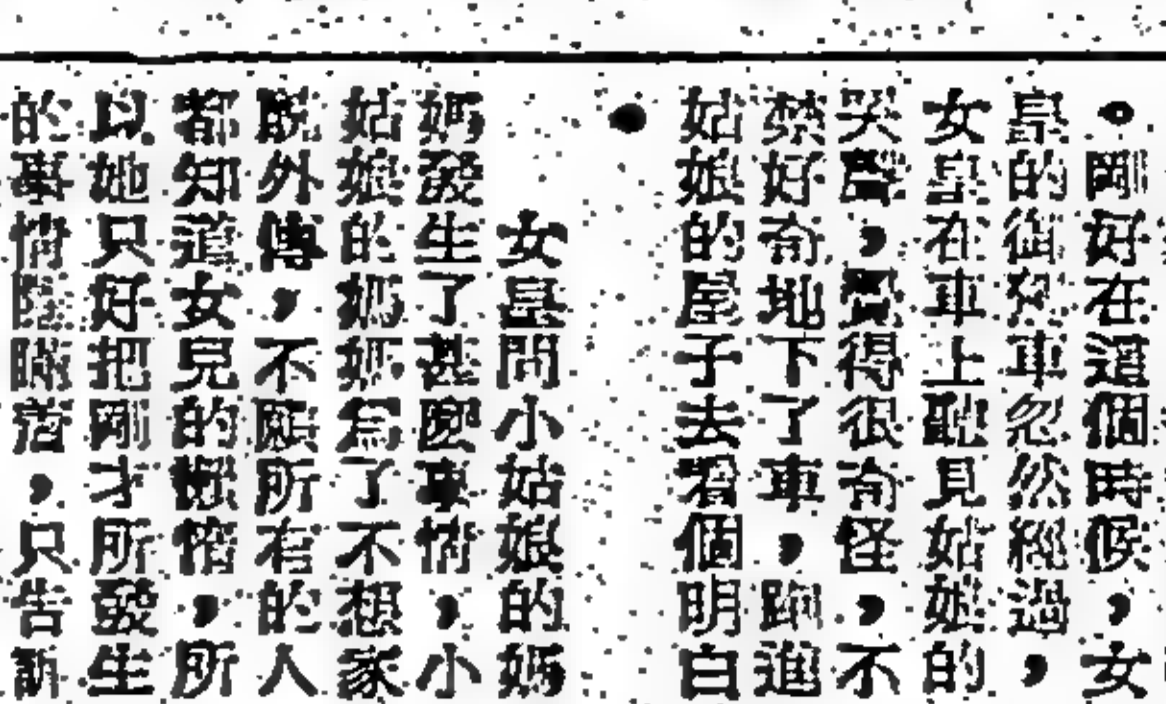 。剛好在這個時候,女
皇的御車忽然經過,
女皇在車上聽見姑娘的
哭聲,覺得很奇怪,不
禁好奇地下了車,跑進
姑娘的屋子去看個明白
。
女皇問小姑娘的媽
媽發生了甚麼事情,小
姑娘的媽媽為了不想家
醜外傳,不願所有的人
都知道女兒的懶惰,所
以她只好把剛才所發生
的事情隱瞞着,只告訴